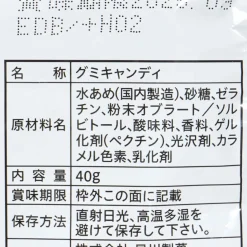 賞味期限2025.09
EDB/+H02
名称 グミキャンディ
原材料名 水あめ(国内製造)、砂糖、ゼラ
チン、粉末オブラート／ソル
ビトール、酸味料、香料、ゲル
化剤(ペクチン)、光沢剤、カラ
メル色素、乳化剤
内容量 40g
賞味期限 枠外この面に記載
保存方法 直射日光、高温多湿を
避けて保存して下さい。